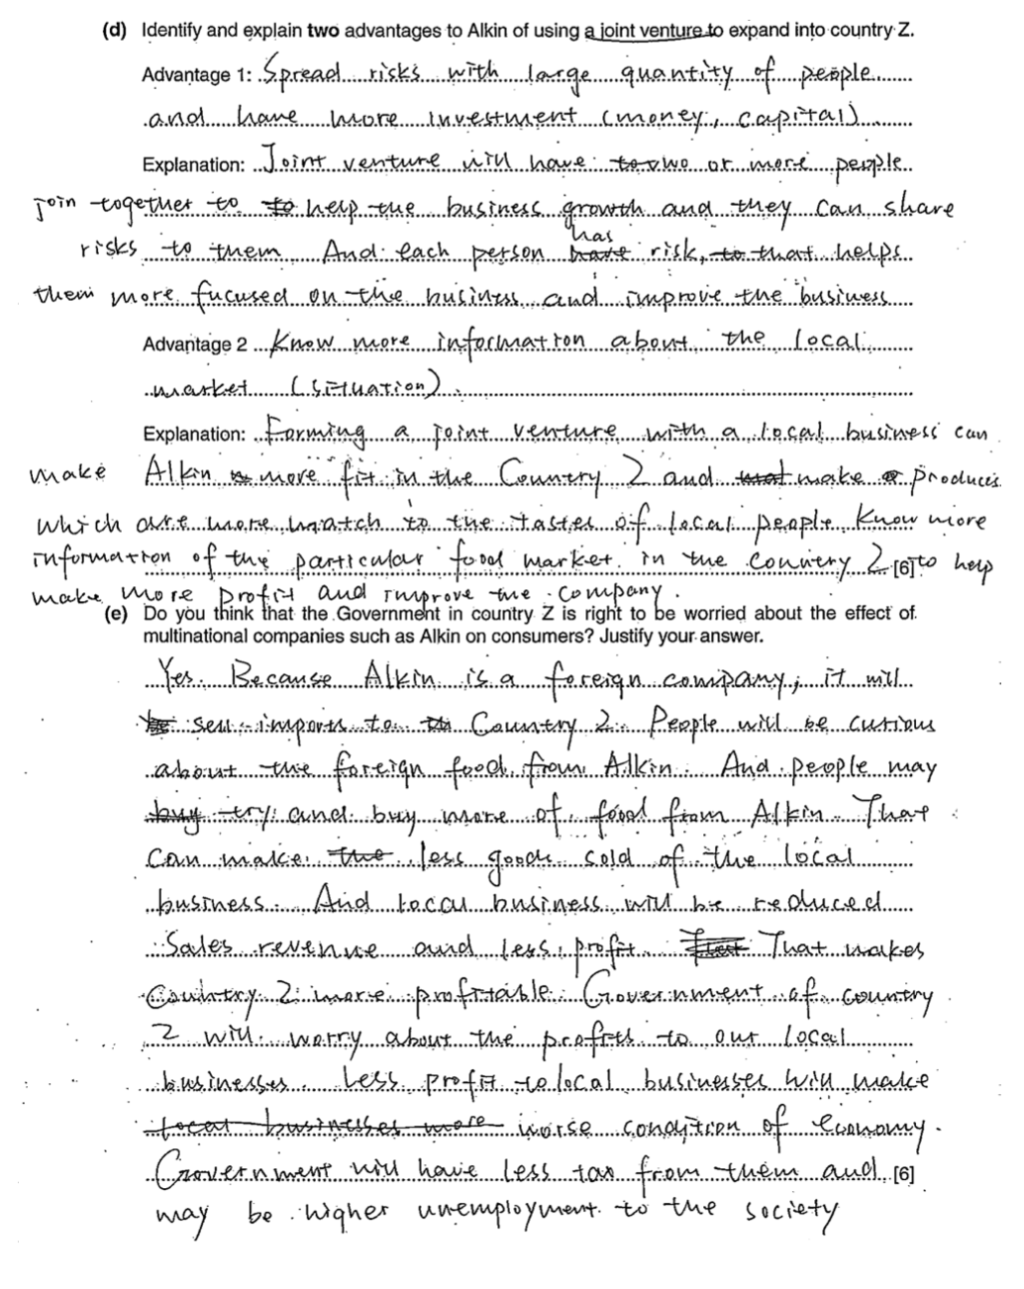 (d) Identify and explain two advantages to Alkin of using a joint venture to expand into country Z.
Advantage 1: Spread risks with large quantity of people
and have more investment (money, capital)
Explanation: Joint venture will have two or more people
join together to to help the business growth and they can share
risks to them. And each person has have risk, to that helps
them more fucused on the business and improve the business
Advantage 2 Know more information about the local
market (situation).
Explanation: Forming a joint venture with a local business can
make Alkin more fit in the Country Z and make produces
which are more match to the tastes of local people. Know more
information of the particular food market in the country Z [6] to help
make more profit and improve the company.
(e) Do you think that the Government in country Z is right to be worried about the effect of
multinational companies such as Alkin on consumers? Justify your answer.
Yes. Because Alkin is a foreign company, it will
sell imports to Country Z. People will be curious
about the foreign food from Alkin. And people may
buy try and buy more of food from Alkin. That
can make the less goods sold of the local
business. And local business will be reduced
Sales revenue and less profit. That makes
Country Z more profitable. Government of country
Z will worry about the profits to our local
businesses. Less profit to local businesses will make
local businesses more worse condition of economy.
Government will have less tax from them and [6]
may be higher unemployment to the society